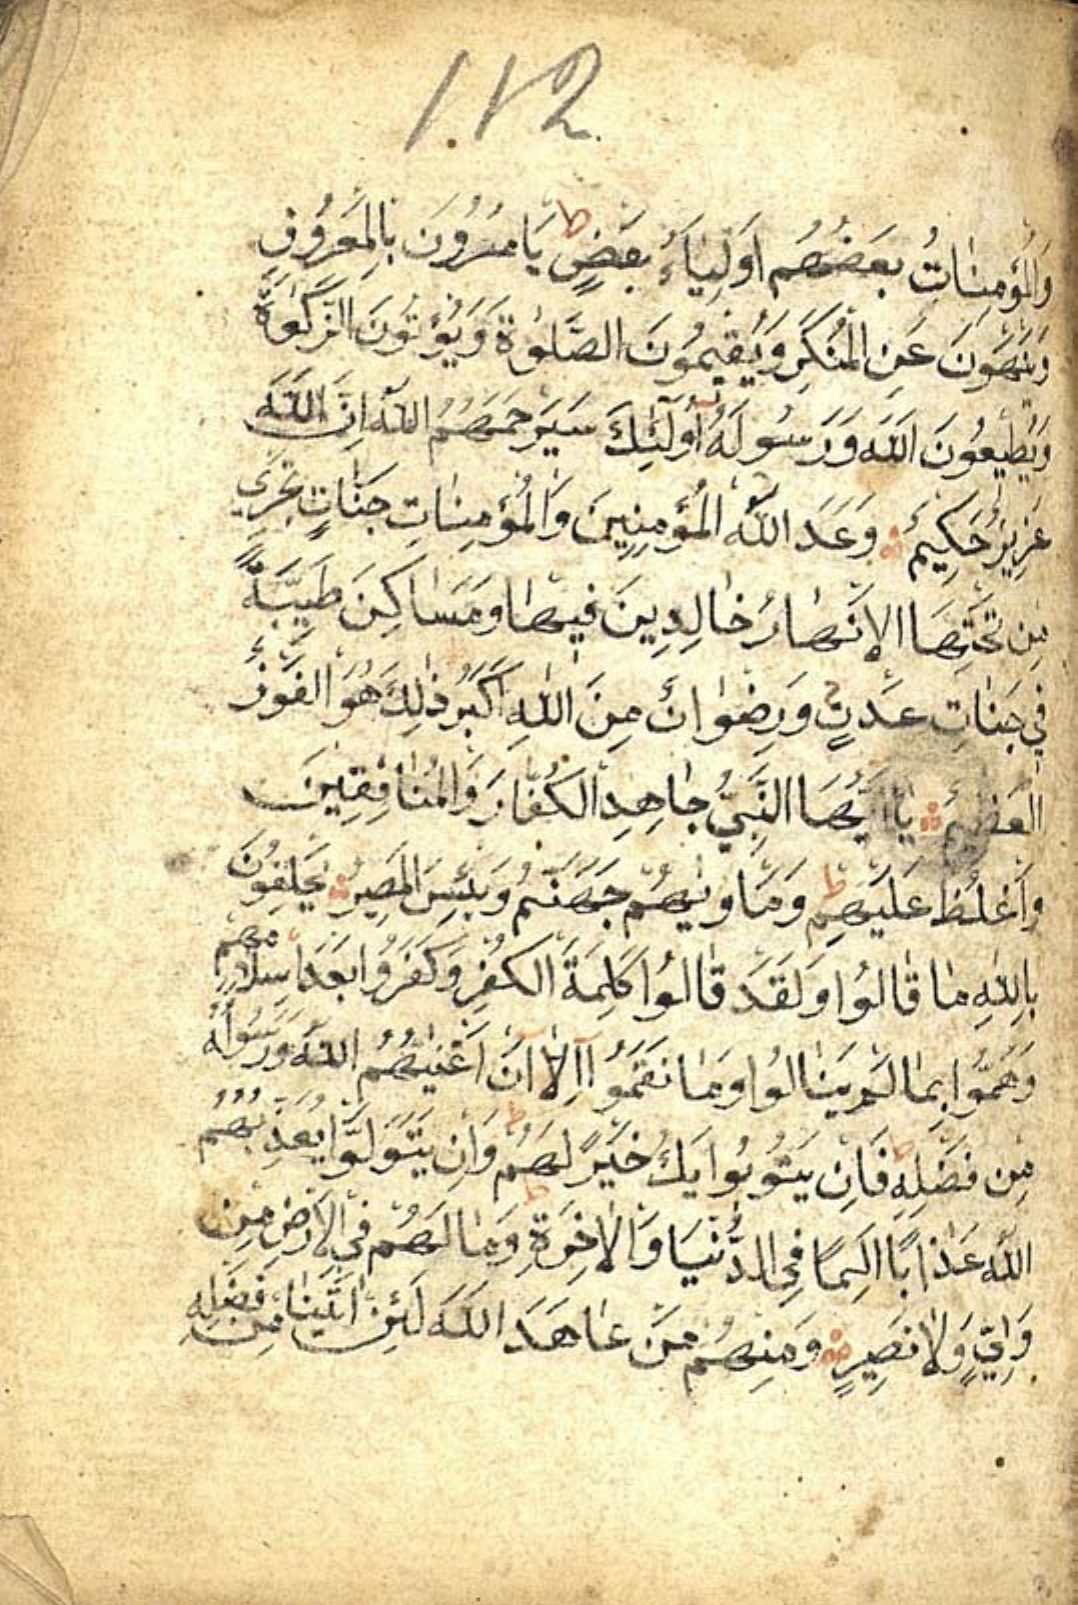 112
وَالْمُؤْمِنَاتُ بَعْضُهُمْ اَوْلِيَاءُ بَعْضٍ ط يَاْمُرُونَ بِالْمَعْرُوفِ
وَيَنْهَوْنَ عَنِ الْمُنْكَرِ وَيُقِيمُونَ الصَّلٰوةَ وَيُؤْتُونَ الزَّكٰوةَ
وَيُطِيعُونَ اللّٰهَ وَرَسُولَهُ اُولٰئِكَ سَيَرْحَمُهُمُ اللّٰهُ اِنَّ اللّٰهَ
عَزِيزٌ حَكِيمٌ وَعَدَ اللّٰهُ الْمُؤْمِنِينَ وَالْمُؤْمِنَاتِ جَنَّاتٍ تَجْرِي
مِنْ تَحْتِهَا الْاَنْهَارُ خَالِدِينَ فِيهَا وَمَسَاكِنَ طَيِّبَةً
فِي جَنَّاتِ عَدْنٍ وَرِضْوَانٌ مِنَ اللّٰهِ اَكْبَرُ ذٰلِكَ هُوَ الْفَوْزُ
الْعَظِيمُ يَا اَيُّهَا النَّبِيُّ جَاهِدِ الْكُفَّارَ وَالْمُنَافِقِينَ
وَاغْلُظْ عَلَيْهِمْ ط وَمَاْوٰيهُمْ جَهَنَّمُ وَبِئْسَ الْمَصِيرُ يَحْلِفُونَ
بِاللّٰهِ مَا قَالُوا وَلَقَدْ قَالُوا كَلِمَةَ الْكُفْرِ وَكَفَرُوا بَعْدَ اِسْلَامِهِمْ
وَهَمُّوا بِمَا لَمْ يَنَالُوا وَمَا نَقَمُوا اِلَّا اَنْ اَغْنٰيهُمُ اللّٰهُ وَرَسُولُهُ
مِنْ فَضْلِهِ ط فَاِنْ يَتُوبُوا يَكُ خَيْرًا لَهُمْ ط وَاِنْ يَتَوَلَّوْا يُعَذِّبْهُمُ
اللّٰهُ عَذَابًا اَلِيمًا فِي الدُّنْيَا وَالْاٰخِرَةِ ط وَمَا لَهُمْ فِي الْاَرْضِ مِنْ
وَلِيٍّ وَلَا نَصِيرٍ وَمِنْهُمْ مَنْ عَاهَدَ اللّٰهَ لَئِنْ اٰتٰينَا مِنْ فَضْلِهِ